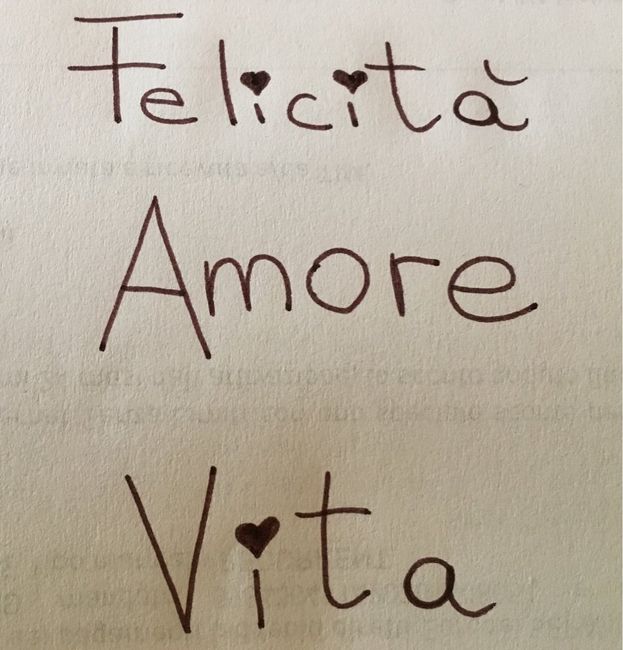 Felicità
Amore
Vita